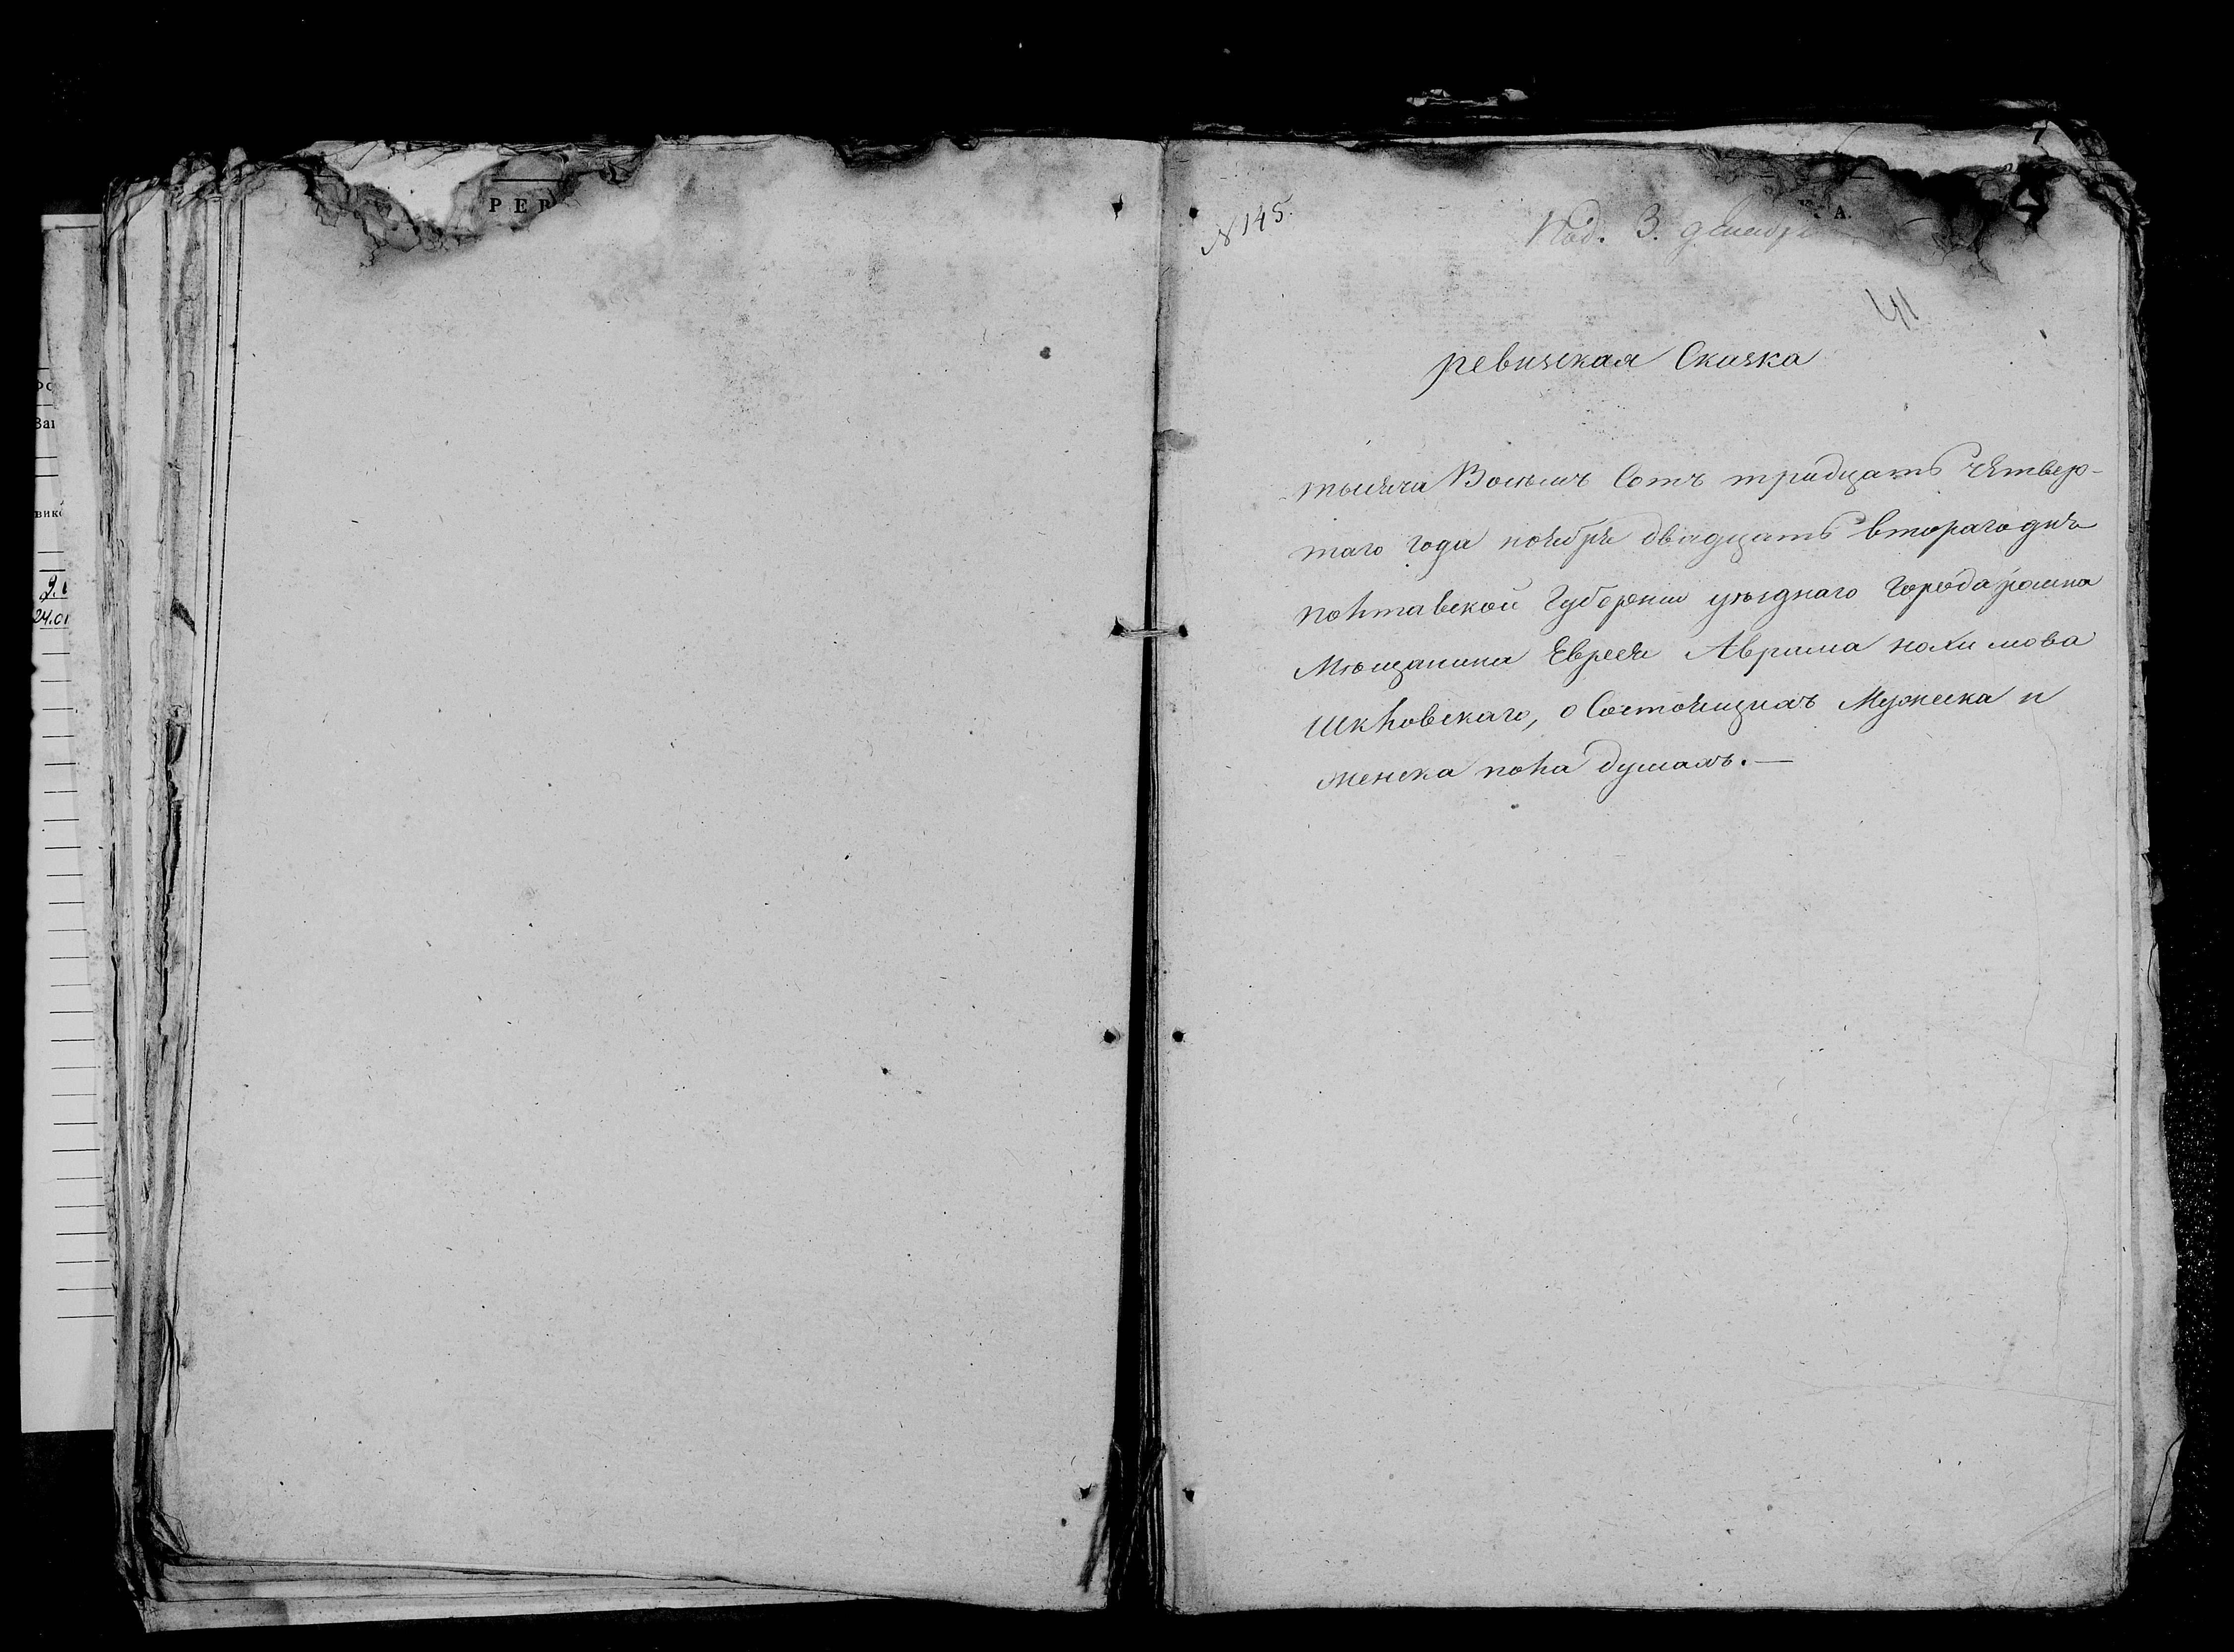 РЕВ
№ 145.
Под. 3. декабр
К А.
41
ревизская Сказка
тысяча Восемъ Сотъ тридцать четвер-
таго года ноября двадцать втораго дня
полтавской Губернии уѣзднаго Города ромна
Мѣщанина Еврея Аврама нохимова
Шкловскаго, о Состоящихъ Мужеска и
женска пола душахъ.—
24.01